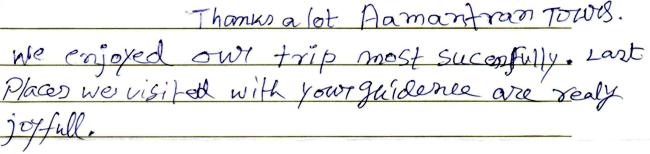 Thanks a lot Aamantran Tours.
We enjoyed our trip most sucessfully. Last
Places we visited with your guidence are realy
joyfull.